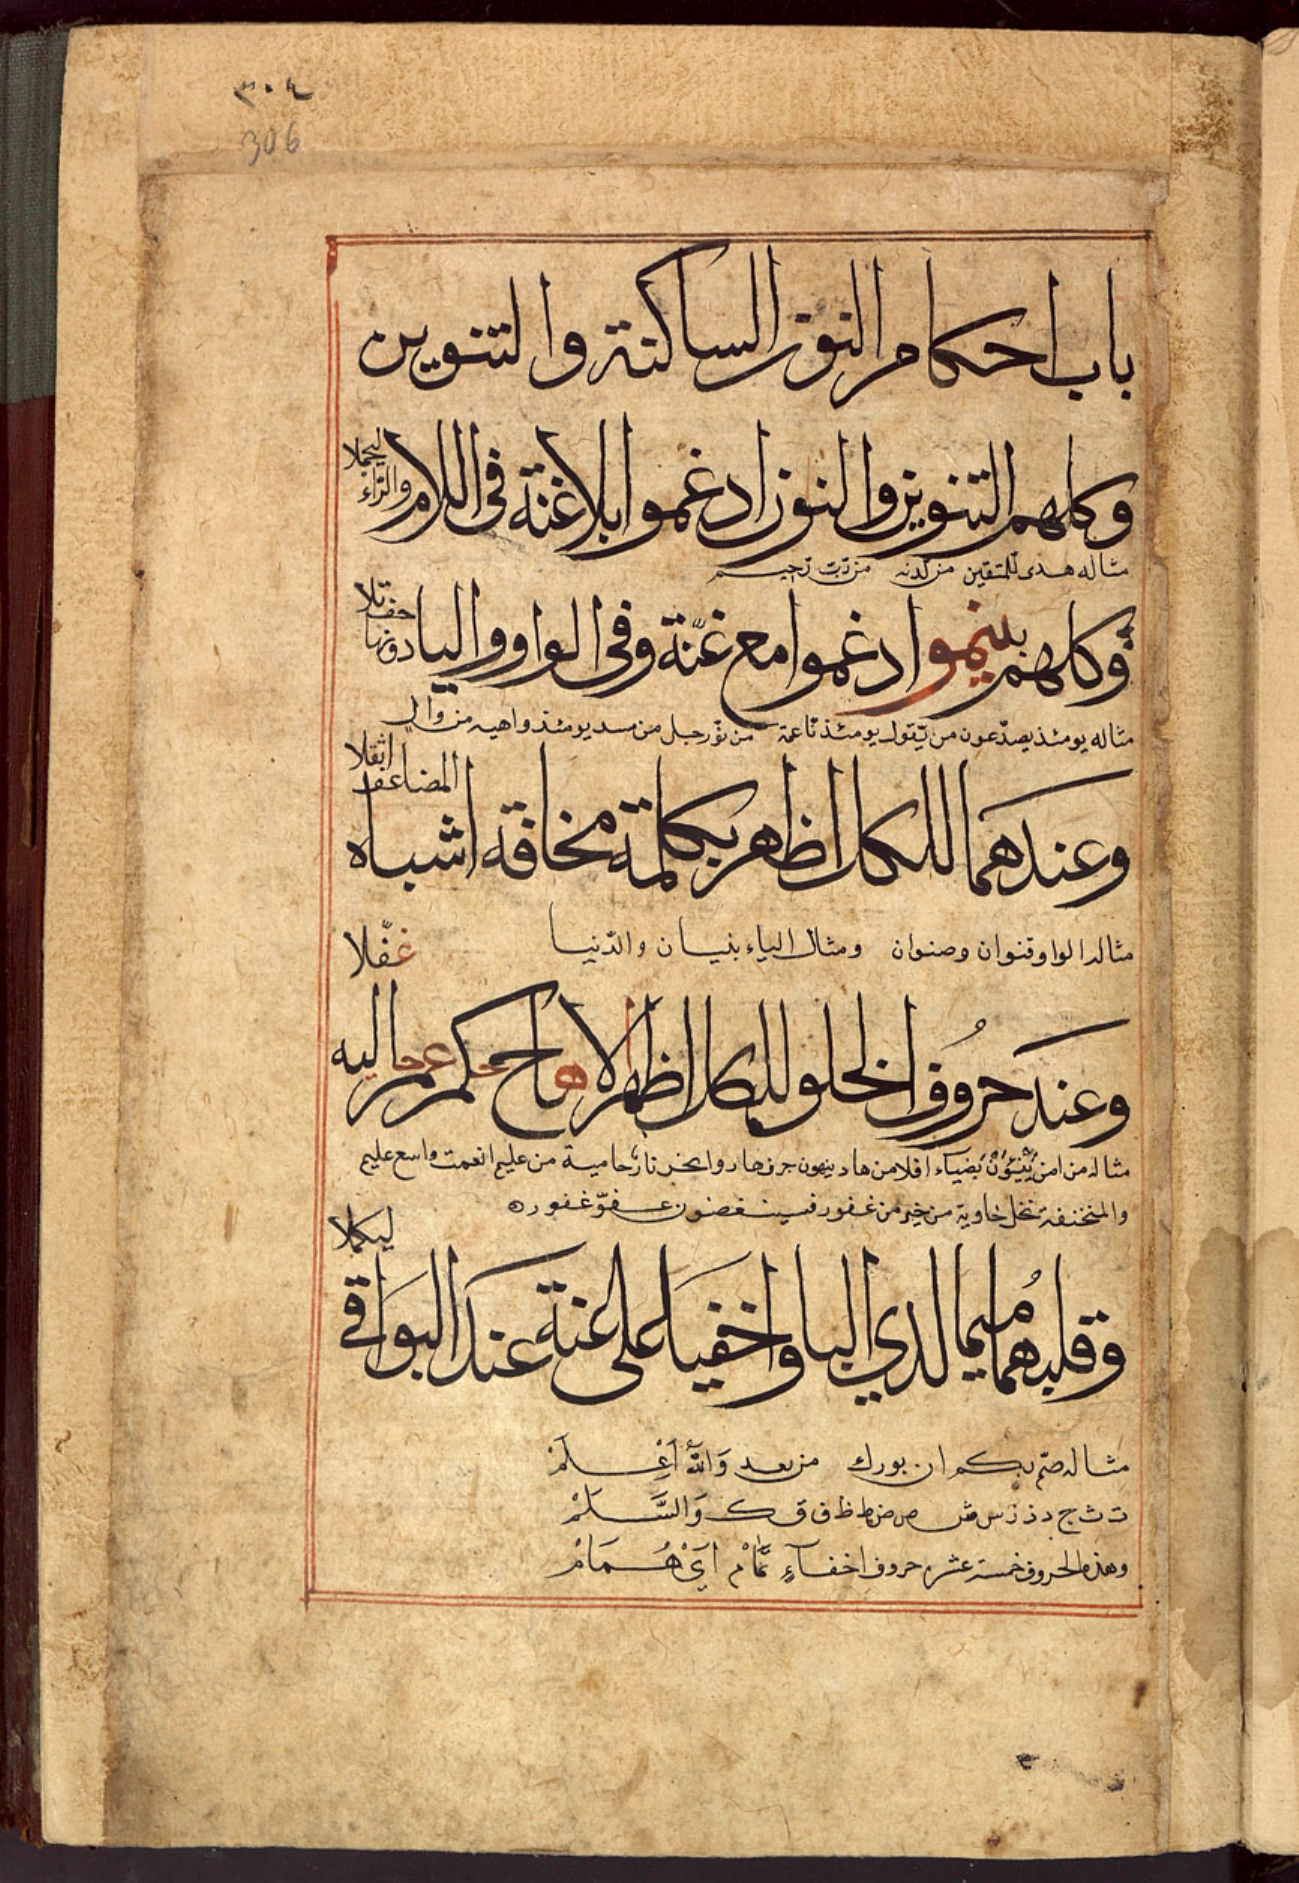 ٣٠٤
306
باب احكام النون الساكنة والتنوين
وكلهم التنوين والنون ادغموا بلا غنة في اللام والراء ليجملا
مثاله هدى للمتقين من لدنه من رب رحيم
وكلهم بينمو ادغموا مع غنة وفي الواو واليا دونها خلف تلا
مثاله يومئذ يصدعون من يقول يومئذ ناعمة من نور حبل من مسد يومئذ واهيه من وال
وعندهما للكل اظهر بكلمة مخافة اشباه المضاعف اثقلا
مثاله الواو قنوان وصنوان ومثال الياء بنيان والدنيا
وعند حروف الحلق للكل اظهرا الا هاج حكم عم خاليه غفلا
مثاله من امن بضياء افلا من هاد ينهون جرف هار وانحر نار حامية من عليم انعمت واسع عليم
والمنخنقة نخل خاوية من خير من غفور فسينغضون عفو غفور
وقلبهما ميما لدي اليا واخفيا على غنة عند البواقي ليكملا
مثاله صم بكم ان بورك من بعد والله اعلم
ت ث ج د ذ ز س ش ص ض ط ظ ف ق ك والسلم
وهذه الحروف خمسة عشر حروف اخفاء تمام اي همام